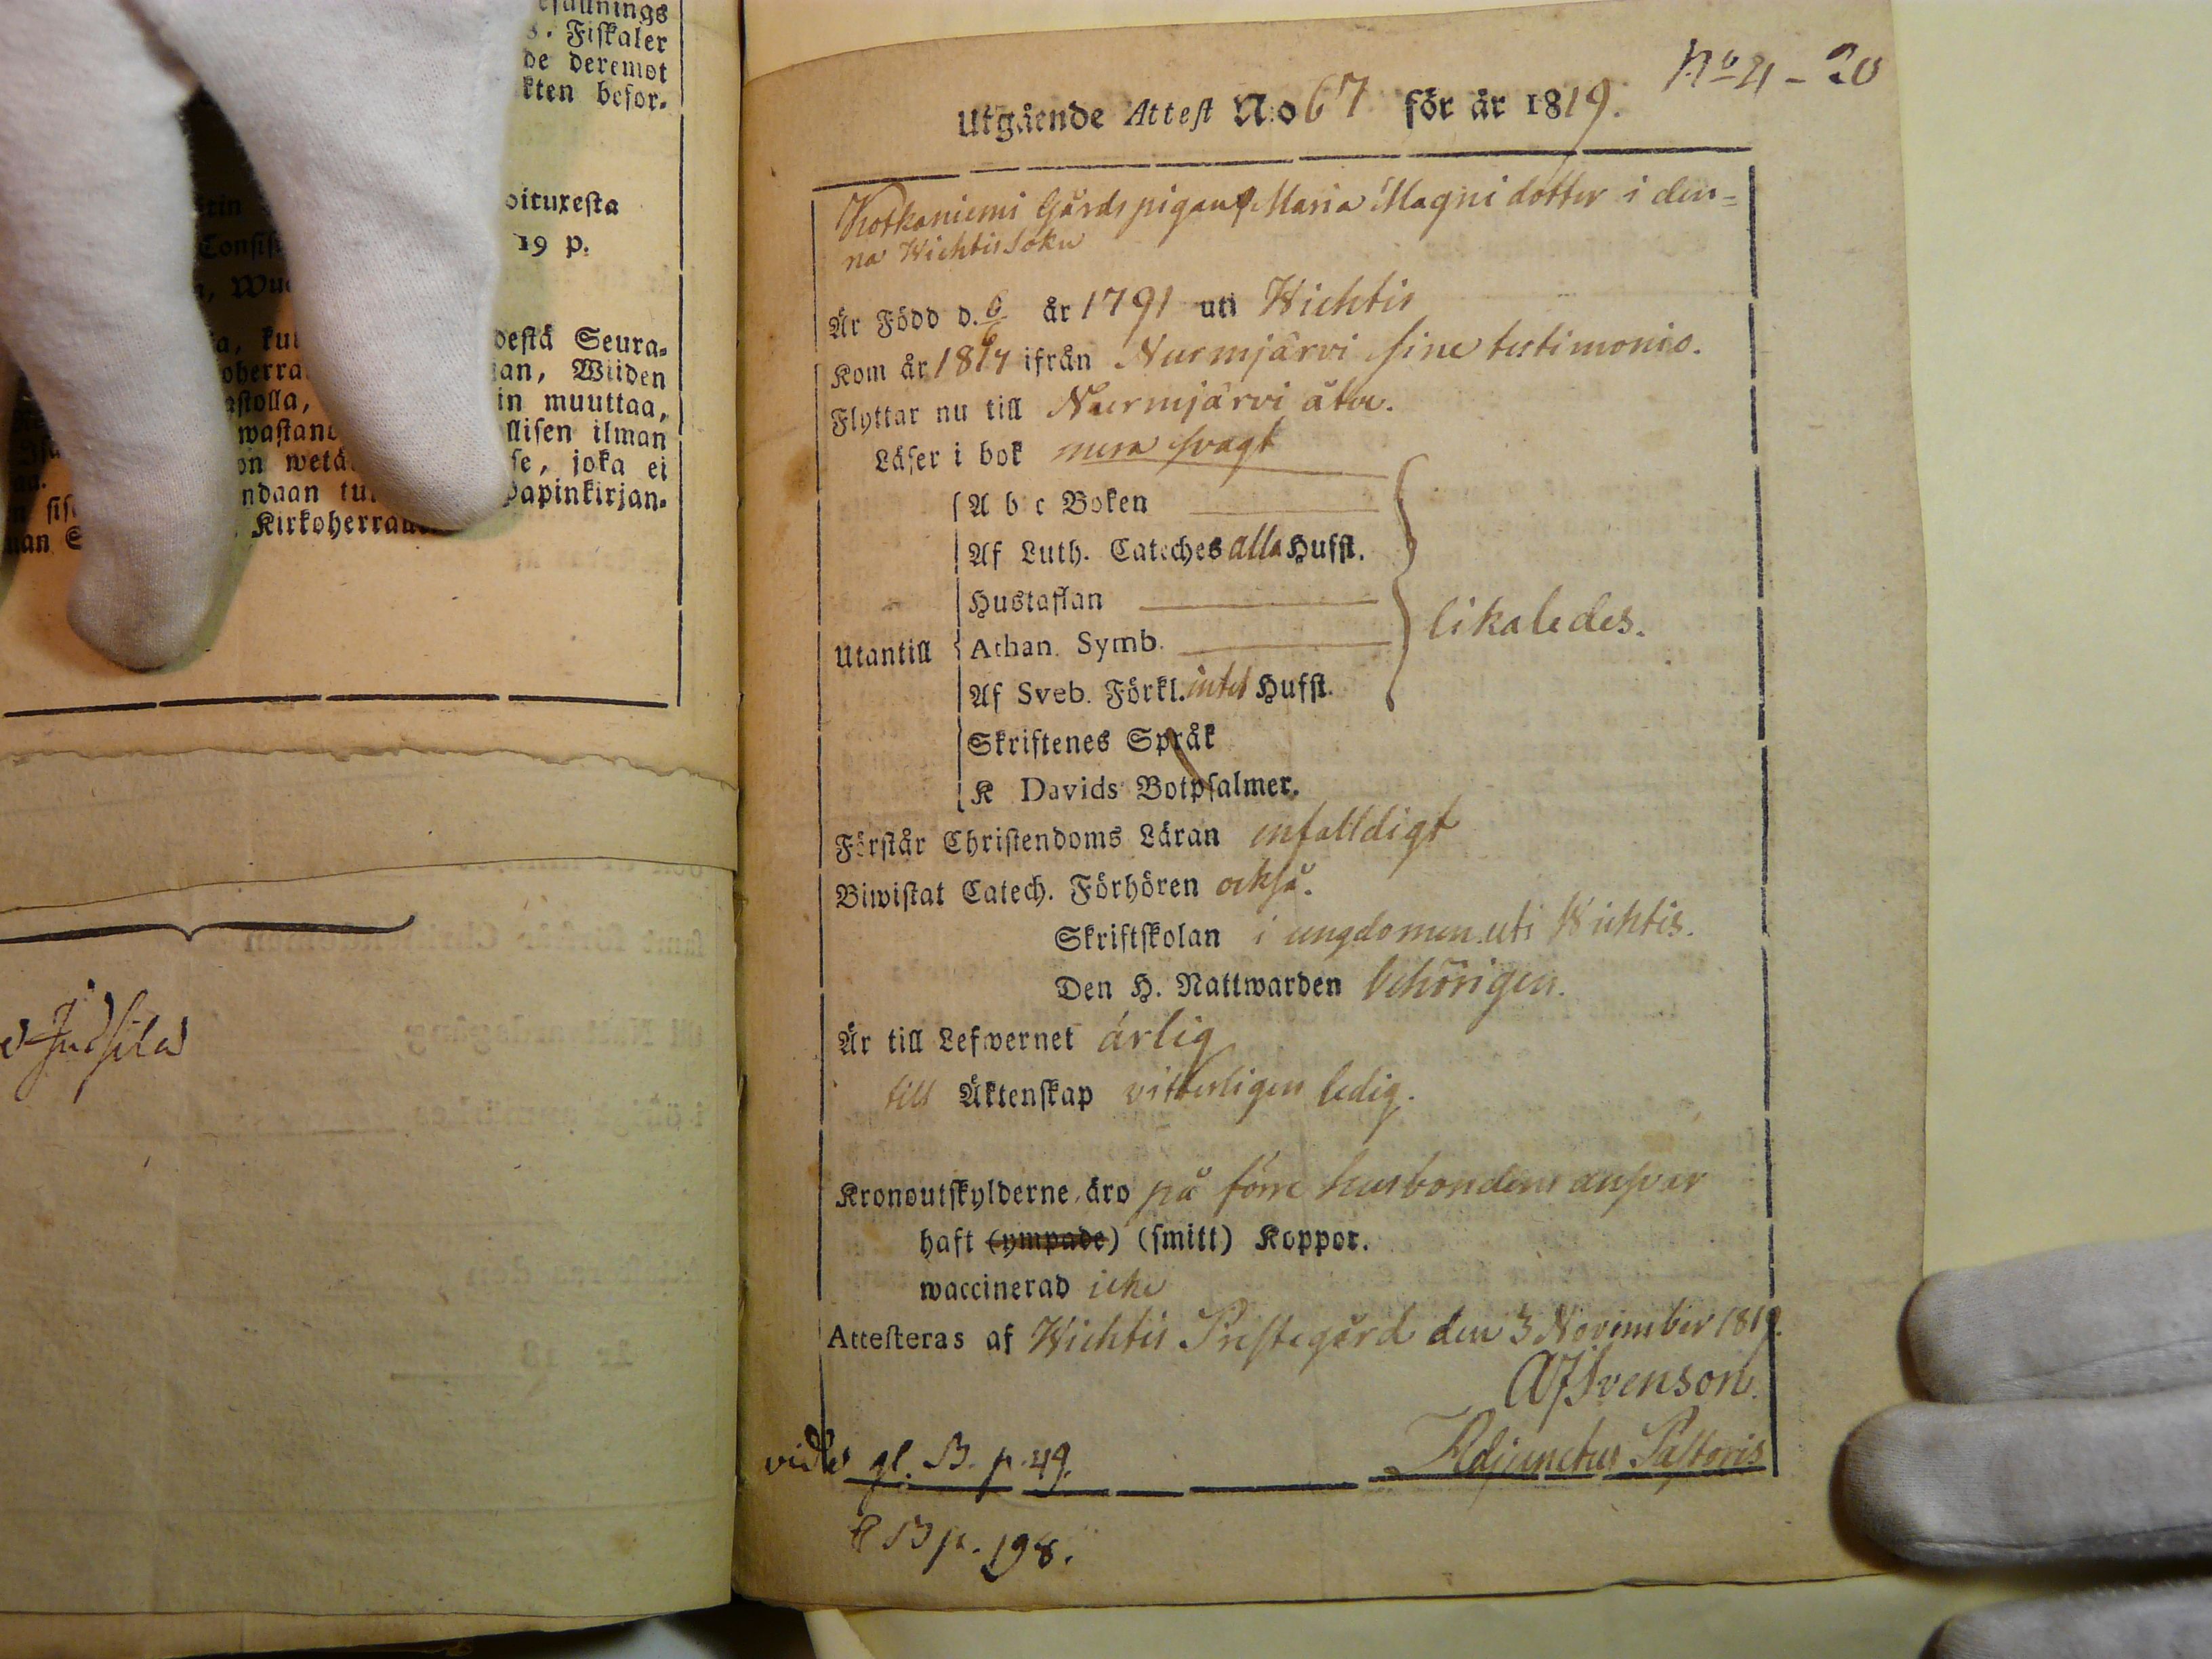 esallnings
Fiskaler
de deremot
kten besor.
oituxesta
19 p.
destä Seura-
oherra jan, Wiiden
astolla, in muuttaa,
wastan llisen ilman
on wetä se, joka ei
ndaan papinkirjan-
Kirkoherra
No 21 - 20
Utgående Attest N:o 67 för år 1819.
Kotkaniemi Gårds pigan Maria Magni dotter i den=
na Wichtis Sokn
Är Född d. 6/6 år 1791 uti Wichtis
Kom år 1817 ifrån Nurmjärvi sine testimonio.
Flyttar nu till Nurmjärvi åter.
Läser i bok mera svagt
A b c Boken
Af Luth. Cateches alla Hufst.
Hustaflan
likaledes.
Utantill Athan. Symb.
Af Sveb. Förkl. intet Hufst.
Skriftenes Språk
K Davids Botpsalmer.
Förstår Christendoms Läran enfalldigt
Biwistat Catech. Förhören också.
Skriftskolan i ungdomen uti Wichtis.
Den H. Nattwarden behörigen.
Är till Lefwernet ärlig
till Äktenskap vitterligen ledig.
Kronoutskylderne äro på förre husbondens ansvar
haft (ympade) (smitt) Koppor.
waccinerad icke
Attesteras af Wichtis Prestegård den 3 November 1819.
AfSvenson.
Adjunctus Pastoris
vide gl. B. p. 49.
B p. 198.